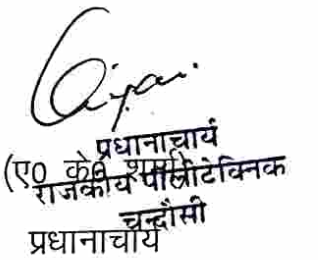 प्रधानाचार्य
(ए० के० शर्मा)
राजकीय पॉलीटेक्निक
चन्दौसी
प्रधानाचार्य